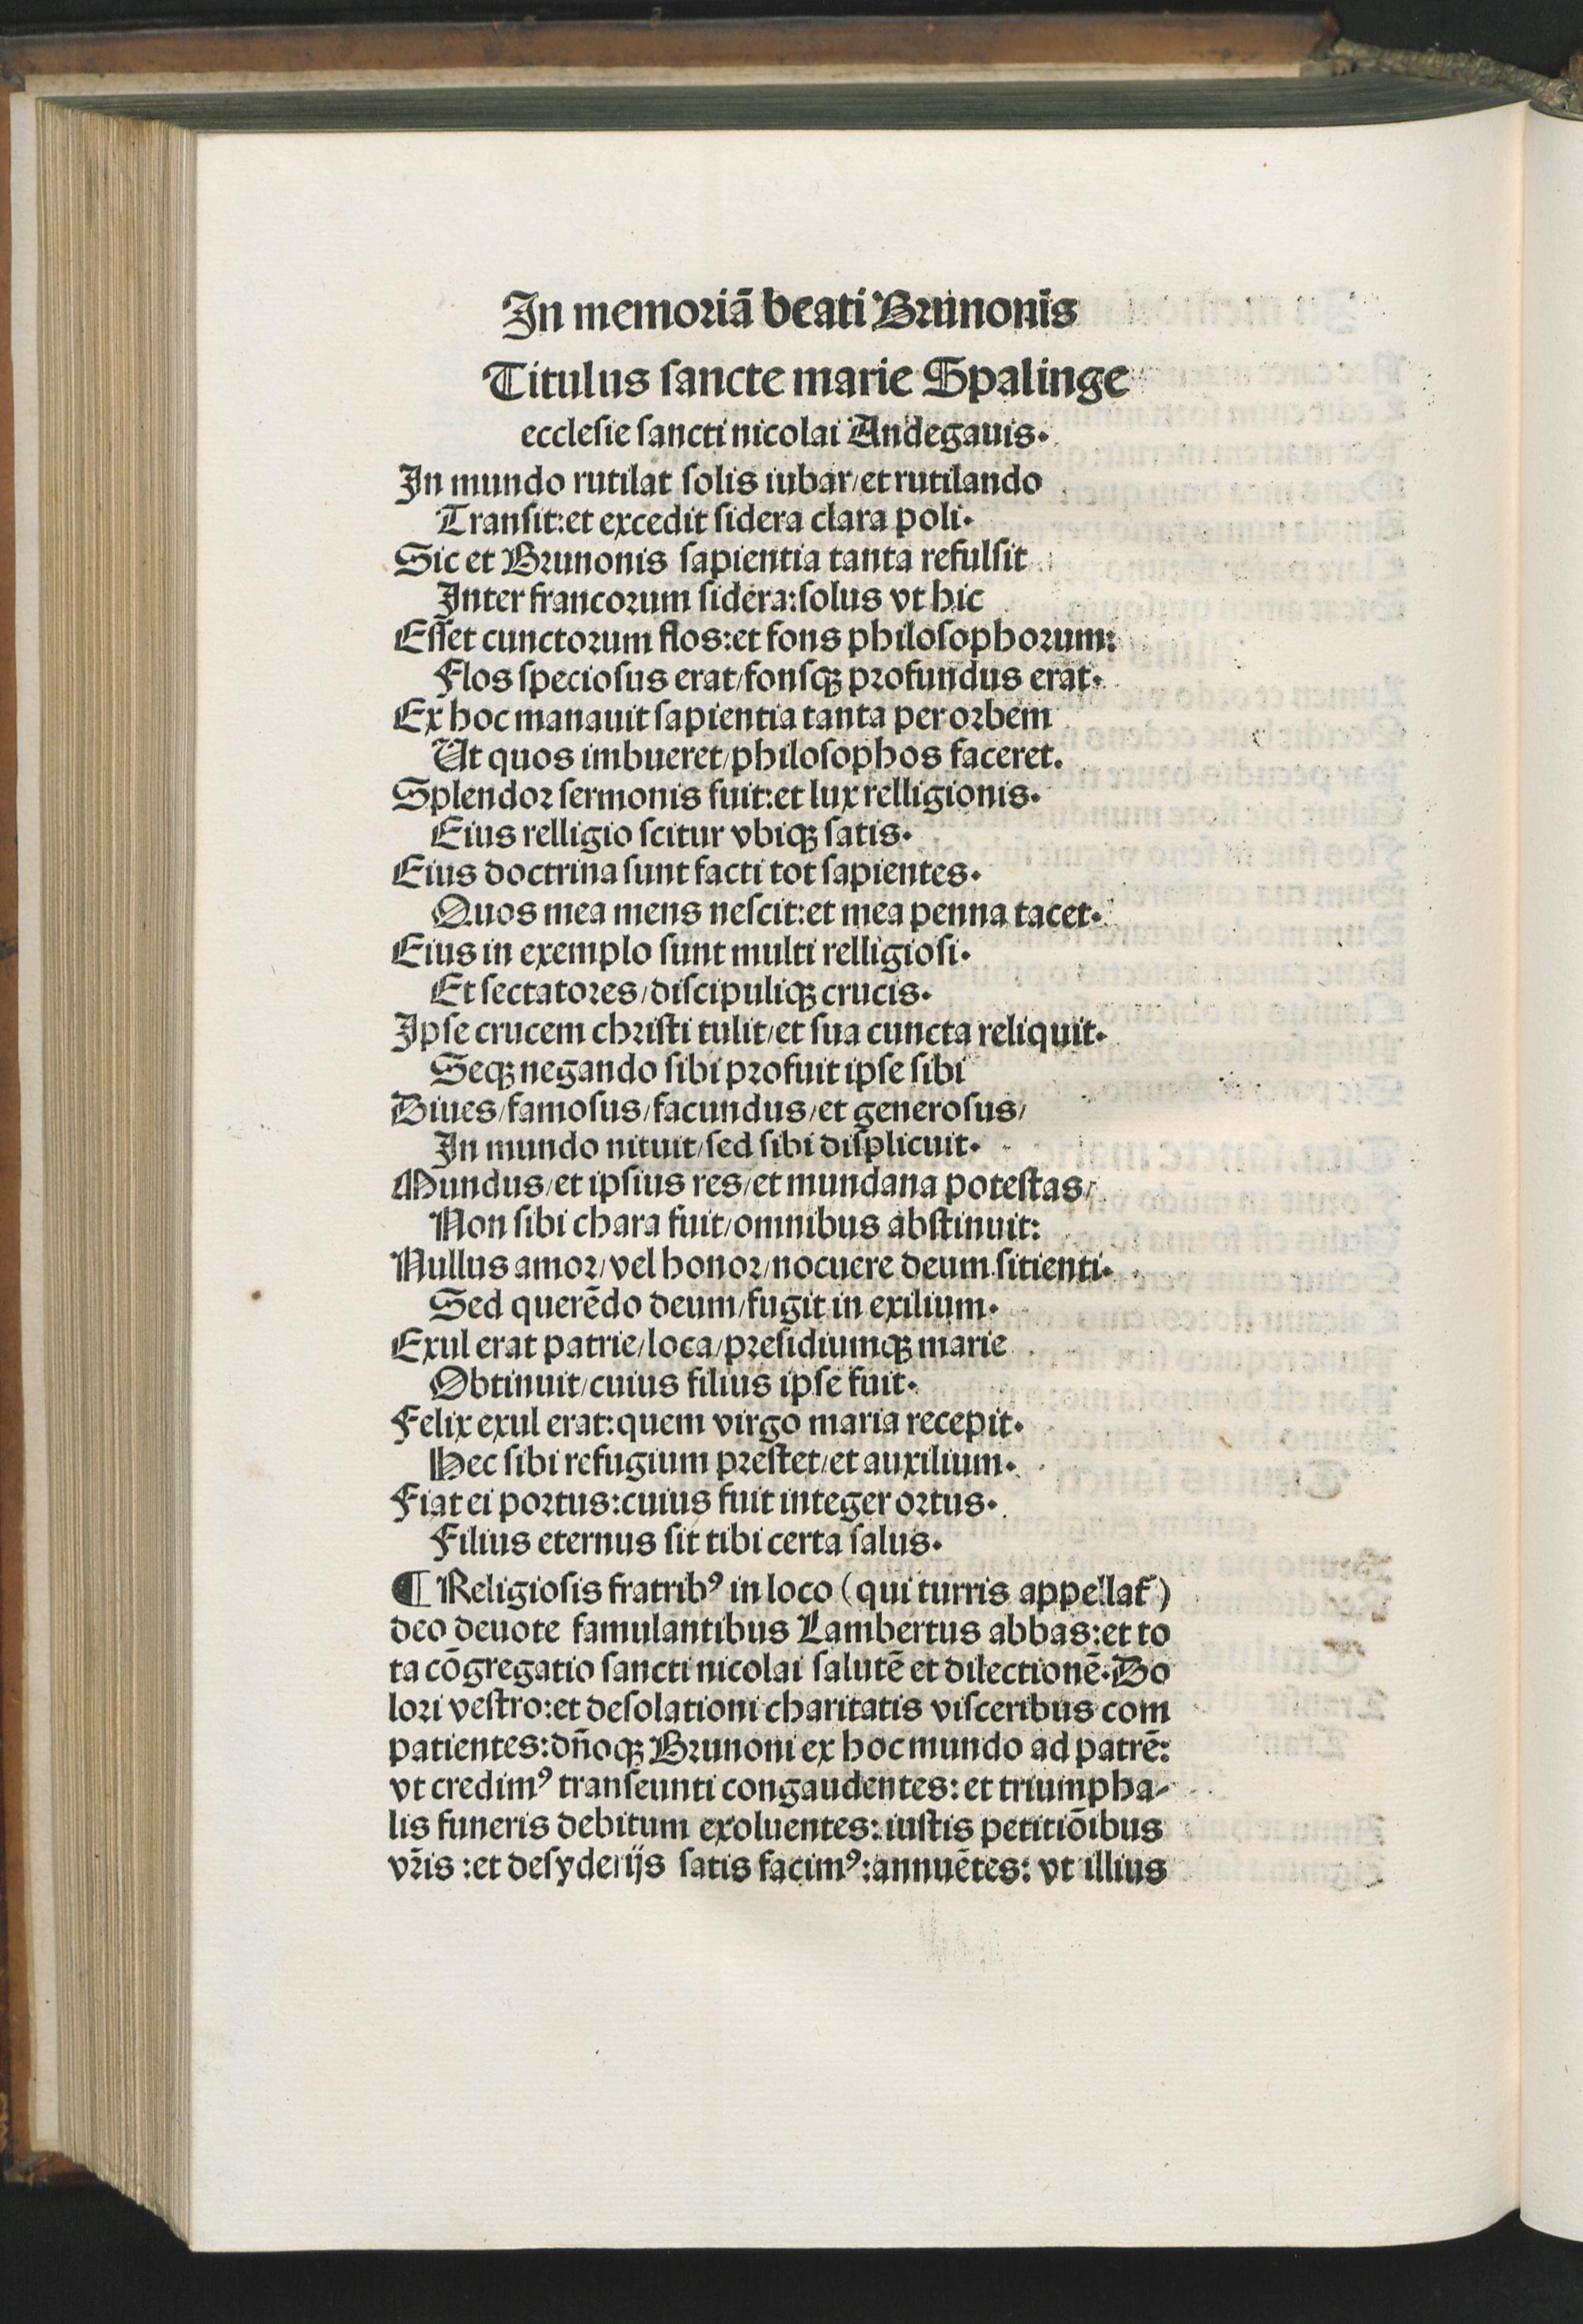 In memoriā beati Brunonis
Titulus sancte marie Spalinge
ecclesie sancti nicolai Andegauis.
In mundo rutilat solis iubar/et rutilando
Transit:et excedit sidera clara poli.
Sic et Brunonis sapientia tanta refulsit
Inter francorum sidera:solus vt hic
Esset cunctorum flos:et fons philosophorum:
Flos speciosus erat/fonsqꝫ profundus erat.
Ex hoc manauit sapientia tanta per orbem
Ut quos imbueret/philosophos faceret.
Splendor sermonis fuit:et lux relligionis.
Eius relligio scitur vbiqꝫ satis.
Eius doctrina sunt facti tot sapientes.
Quos mea mens nescit:et mea penna tacet.
Eius in exemplo sunt multi relligiosi.
Et sectatores/discipuliqꝫ crucis.
Ipse crucem christi tulit/et sua cuncta reliquit.
Seqꝫ negando sibi profuit ipse sibi
Diues/famosus/facundus/et generosus/
In mundo nituit/sed sibi displicuit.
Mundus/et ipsius res/et mundana potestas/
Non sibi chara fuit/omnibus abstinuit:
Nullus amor/vel honor/nocuere deum sitienti.
Sed querēdo deum/fugit in exilium.
Exul erat patrie/loca/presidiumqꝫ marie
Obtinuit/cuius filius ipse fuit.
Felix exul erat:quem virgo maria recepit.
Hec sibi refugium prestet/et auxilium.
Fiat ei portus:cuius fuit integer ortus.
Filius eternus sit tibi certa salus.
¶ Religiosis fratribꝰ in loco (qui turris appellat᷑)
deo deuote famulantibus Lambertus abbas:et to
ta cōgregatio sancti nicolai salutē et dilectionē.Do
lori vestro:et desolationi charitatis visceribus com
patientes:dn̄oqꝫ Brunoni ex hoc mundo ad patrē:
vt credimꝰ transeunti congaudentes: et triumpha-
lis funeris debitum exoluentes: iustis petitiōibus
vr̄is :et desyderijs satis facimꝰ:annuētes: vt illius